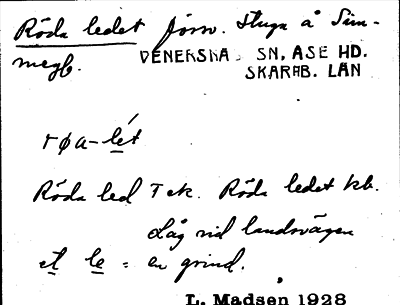 Röda ledet försv. Stuga å Sim-
megb. VENERSHA. SN, ASE HD.
SKARAB. LÄN
røa-lét
Röda led Tek. Röda ledet kb.
Låg vid landsvägen
et le = en grind.
L. Madsen 1928